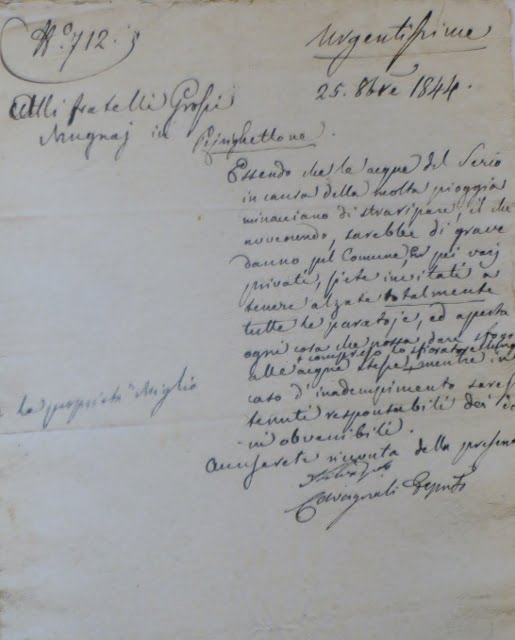 N.° 712.
Urgentissime
25. 8bre 1844.
Alli fratelli Grossi
Mugnaj in Pizzighettone.
Essendo che le acque del Serio
in causa della molta pioggia
minacciano di straripare, il che
avvenendo, sarebbe di grave
danno pel Comune, e pei varj
privati, siete invitati a
tenere alzate totalmente
tutte le paratoje, ed aperta
ogni cosa che possa dare sfogo
+ compreso lo sfioratore
alle acque stesse + mentre in
caso d'inadempimento sarete
tenuti responsabili dei
ni obvenibili.
la proprietà Miglio
Accuserete ricevuta della presente
Deput.